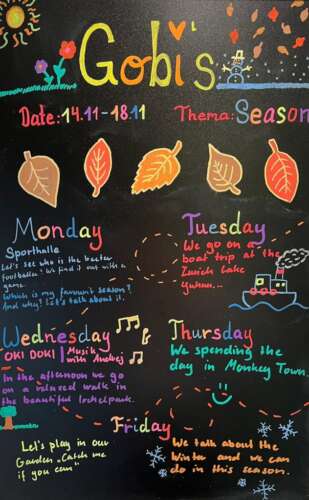 Gobi's
Date: 14.11-18.11 Thema: Season
Monday
Sporthalle
Let's see who is the better
footballer? We find it out with a
game.
Which is my favourit season?
And why? Let's talk about it.
Tuesday
We go on a
boat trip at the
Zurich Lake
Wednesday
OKI DOKI | Musik
with Andrej
In the afternoon we go
on a relaxed walk in
the beautiful Irchelpark.
Thursday
We spending the
day in Monkey Town.
Friday
Let's play in our
Garden „Catch me
if you can"
We talk about the
Winter and we can
do in this season.